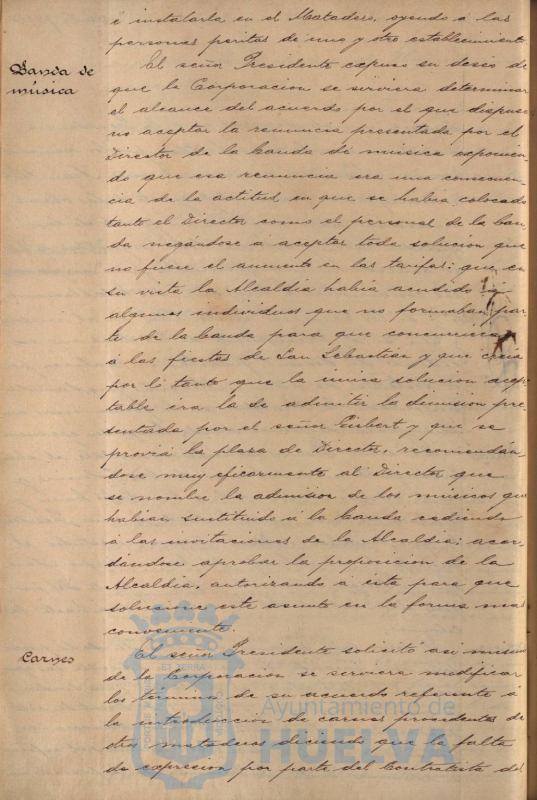 é instalarla en el Matadero, oyendo á las
personas peritas de uno y otro establecimiento.
Banda de
música
El señor Presidente expuso su deseo de
que la Corporacion se sirviera determinar
el alcance del acuerdo por el que dispuso
no aceptar la renuncia presentada por el
Director de la banda de música exponien-
do que esa renuncia era una consecuen-
cia de la actitud en que se habia colocado
tanto el Director como el personal de la ban-
da negándose á aceptar toda solucion que
no fuese el aumento en las tarifas: que en
su vista la Alcaldia habia acudido
algunos individuos que no formaban par-
te de la banda para que
á las fiestas de San Sebastian y que creia
por lo tanto que la única solucion acep-
table era la de admitir la dimision pre-
sentada por el señor Gisbert y que se
provea la plaza de Director, recomendán-
dose muy eficazmente al Director que
se nombre la admision de los músicos que
habian sustituido á la banda cediendo
á las invitaciones de la Alcaldia; acor-
dándose aprobar la proposicion de la
Alcaldia, autorizando á esta para que
solucione este asunto en la forma mas
conveniente.
Carnes
El señor Presidente solicitó asi mismo
de la Corporacion se serviera modificar
los términos de su acuerdo referente á
la introduccion de carnes procedentes de
otros mataderos diciendo que la falta
de expresion por parte del Contratista del
ET TERRA
Ayuntamiento de
HUELVA